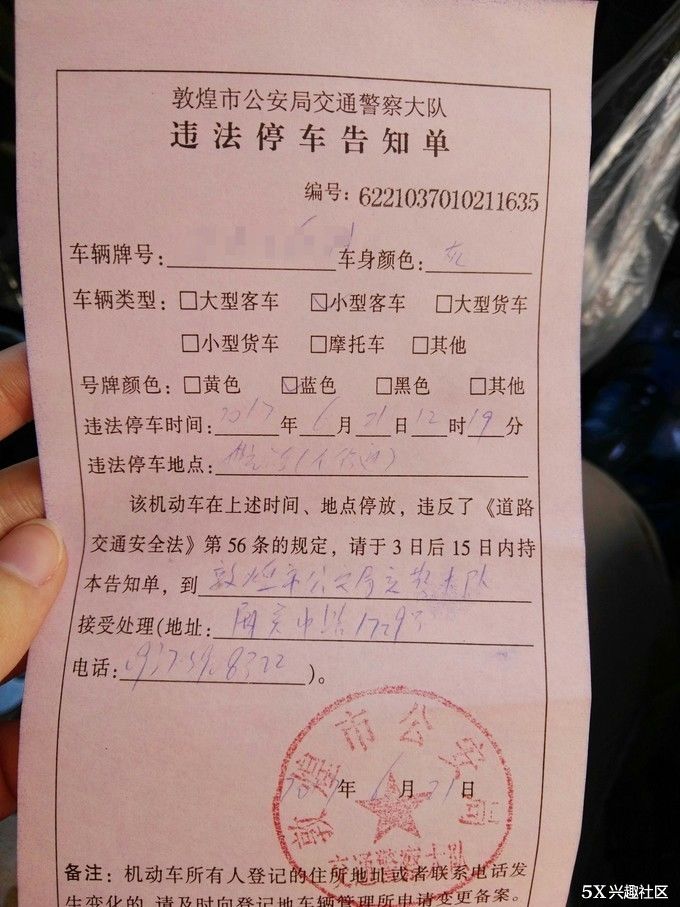 敦煌市公安局交通警察大队
违法停车告知单
编号：6221037010211635
车辆牌号： 车身颜色：灰
车辆类型：□大型客车 ☑小型客车 □大型货车
□小型货车 □摩托车 □其他
号牌颜色：□黄色 ☑蓝色 □黑色 □其他
违法停车时间：2017年6月21日12时19分
违法停车地点：
该机动车在上述时间、地点停放，违反了《道路
交通安全法》第56条的规定，请于3日后15日内持
本告知单，到敦煌市公安局交警大队
接受处理(地址：1729号
电话：0937-5908322)。
2017年6月21日
敦煌市公安局
交通警察大队
备注：机动车所有人登记的住所地址或者联系电话发
生变化的，请及时向登记地车辆管理所申请变更备案。
5X兴趣社区